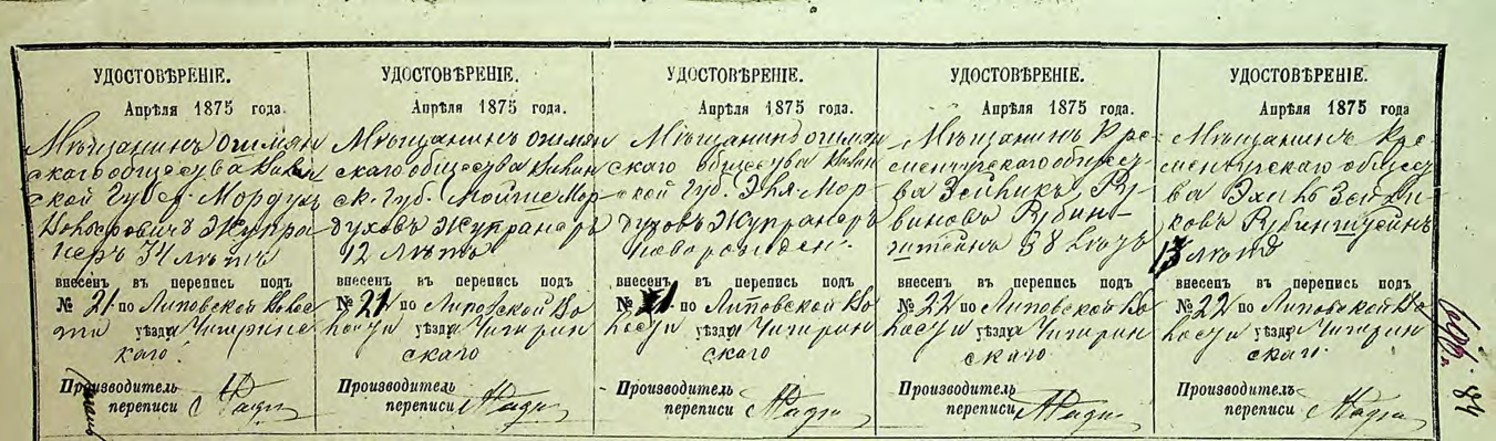 УДОСТОВѢРЕНІЕ.
Апрѣля 1875 года.
Мѣщанинъ Ошмян
скаго общества Вилен
ской Губер. Мордухъ
Жупра
неръ 34 лѣтъ
внесенъ въ перепись подъ
№ 21 по Липовской Волос
ти уѣзда Чигринс
каго.
Производитель
переписи
УДОСТОВѢРЕНІЕ.
Апрѣля 1875 года.
Мѣщанинъ Ошмян
скаго общества Вилен
ск. Губ. Мойше Мор-
духовъ Жупранеръ
12 лѣтъ
внесенъ въ перепись подъ
№ 21 по Липовской Во
лости уѣзда Чигрин
скаго
Производитель
переписи
УДОСТОВѢРЕНІЕ.
Апрѣля 1875 года.
Мѣщанинъ Ошмян
скаго общества Вилен
ской Губ. Мор-
духовъ Жупранеръ
новорожден.
внесенъ въ перепись подъ
№ 21 по Липовской Во
лости уѣзда Чигрин
скаго
Производитель
переписи
УДОСТОВѢРЕНІЕ.
Апрѣля 1875 года.
Мѣщанинъ Кре-
менчугскаго общест
ва Зейликъ Ру
виновъ Рубин-
штейнъ 38 лѣтъ
внесенъ въ перепись подъ
№ 22 по Липовской Во
лости уѣзда Чигрин
скаго
Производитель
переписи
УДОСТОВѢРЕНІЕ.
Апрѣля 1875 года
Мѣщанинъ Кре-
менчугскаго общест
ва Зейли
ковъ Рубинштейнъ
13 лѣтъ
внесенъ въ перепись подъ
№ 22 по Липовской Во
лости уѣзда Чигрин
скаго.
Производитель
переписи
84